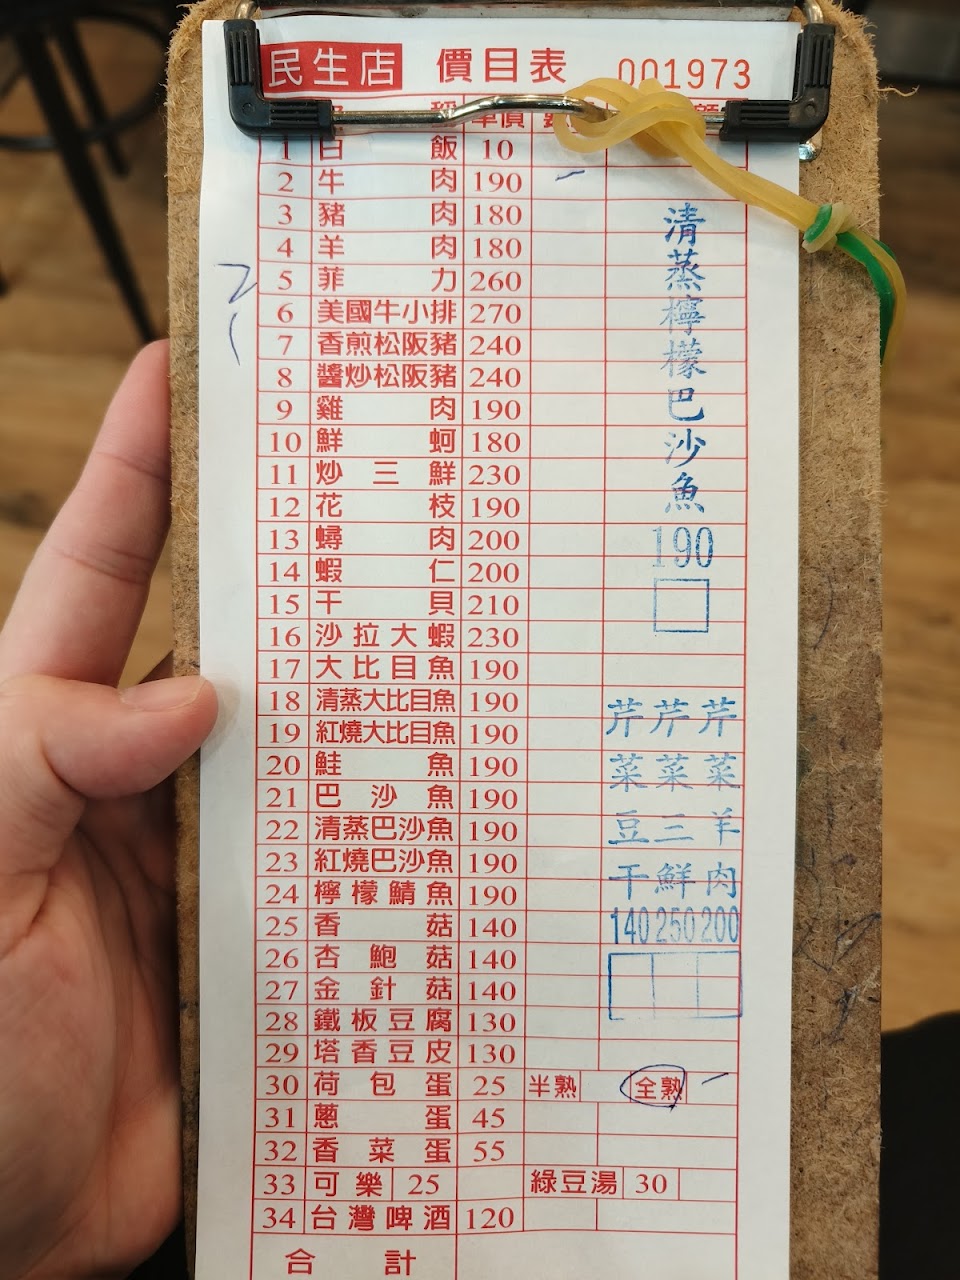 民生店 價目表 001973
單價
1 白飯 10
2 牛肉 190
3 豬肉 180
4 羊肉 180
5 菲力 260
6 美國牛小排 270
7 香煎松阪豬 240
8 醬炒松阪豬 240
9 雞肉 190
10 鮮蚵 180
11 炒三鮮 230
12 花枝 190
13 蟳肉 200
14 蝦仁 200
15 干貝 210
16 沙拉大蝦 230
17 大比目魚 190
18 清蒸大比目魚 190
19 紅燒大比目魚 190
20 鮭魚 190
21 巴沙魚 190
22 清蒸巴沙魚 190
23 紅燒巴沙魚 190
24 檸檬鯖魚 190
25 香菇 140
26 杏鮑菇 140
27 金針菇 140
28 鐵板豆腐 130
29 塔香豆皮 130
30 荷包蛋 25 半熟 全熟
31 蔥蛋 45
32 香菜蛋 55
33 可樂 25 綠豆湯 30
34 台灣啤酒 120
合計
清蒸檸檬巴沙魚
190
芹菜豆干 140
芹菜三鮮 250
芹菜羊肉 200